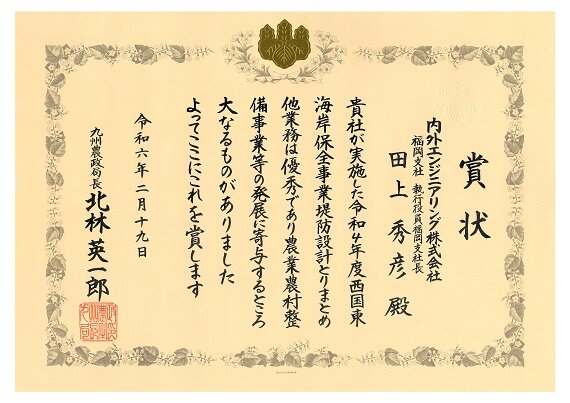 賞状
内外エンジニアリング株式会社
福岡支社 執行役員福岡支社長
田上秀彦殿
貴社が実施した令和4年度西国東
海岸保全事業堤防設計とりまとめ
他業務は優秀であり農業農村整
備事業等の発展に寄与するところ
大なるものがありました
よってここにこれを賞します
令和六年二月十九日
九州農政局長
北林英一郎